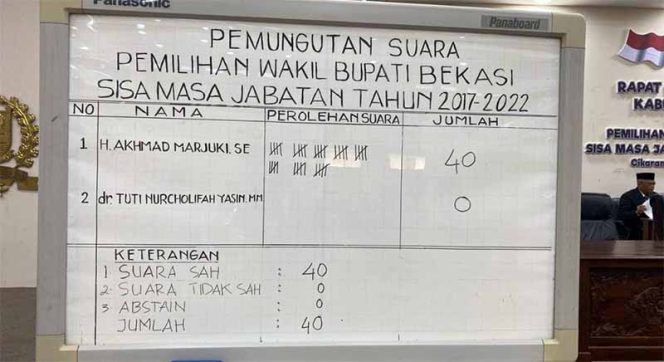 Panasonic
Panaboard
PEMUNGUTAN SUARA
PEMILIHAN WAKIL BUPATI BEKASI
SISA MASA JABATAN TAHUN 2017-2022
NO NAMA PEROLEHAN SUARA JUMLAH
1 H. AKHMAD MARJUKI. SE 40
2 dr. TUTI NURCHOLIFAH YASIN. MM 0
KETERANGAN
1 SUARA SAH : 40
2. SUARA TIDAK SAH : 0
3. ABSTAIN : 0
JUMLAH : 40
RAPAT
KAB
PEMILIHAN
SISA MASA JA
Cikaran